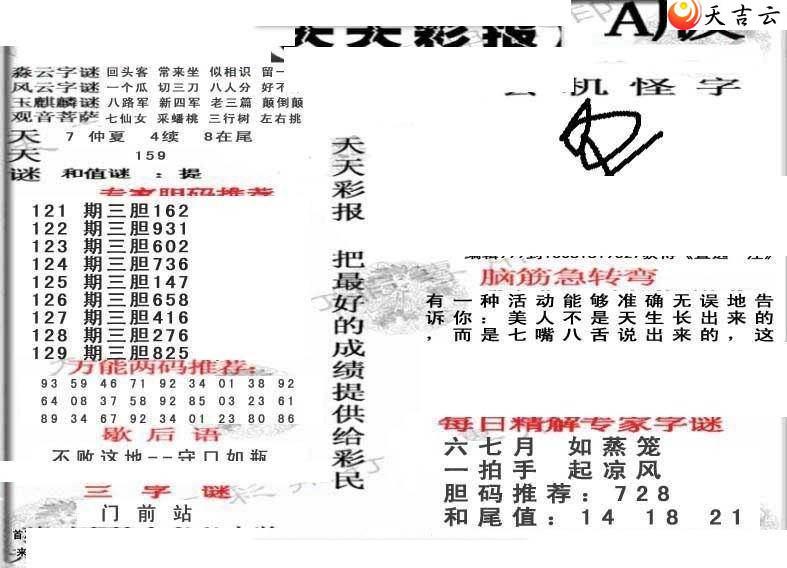 天天彩报
天吉云
森云字谜 回头客 常来坐 似相识 留一
风云字谜 一个瓜 切三刀 八人分 好
玉麒麟谜 八路军 新四军 老三篇 颠倒颠
观音菩萨 七仙女 采蟠桃 三行树 左右挑
天 7 仲夏 4续 8在尾
天 159
谜 和值谜 : 提
专家胆码推荐
121 期三胆162
122 期三胆931
123 期三胆602
124 期三胆736
125 期三胆147
126 期三胆658
127 期三胆416
128 期三胆276
129 期三胆825
万能两码推荐:
93 59 46 71 92 34 01 38 92
64 08 37 58 92 85 03 23 61
89 34 67 92 34 01 23 80 86
歇后语
不败这地--守口如瓶
三字谜
门前站
首
来
天天彩报 把最好的成绩提供给彩民
机怪字
脑筋急转弯
有一种活动能够准确无误地告
诉你: 美人不是天生长出来的
, 而是七嘴八舌说出来的, 这
每日精解专家字谜
六七月 如蒸笼
一拍手 起凉风
胆码推荐: 728
和尾值: 14 18 21